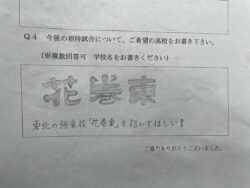 Q4 今後の招待試合について、ご希望の高校をお書き下さい。
(※複数回答可 学校名をお書きください)
花巻東
東北の強豪校「花巻東」を招いてほしい!
ご協力ありがとうございました。